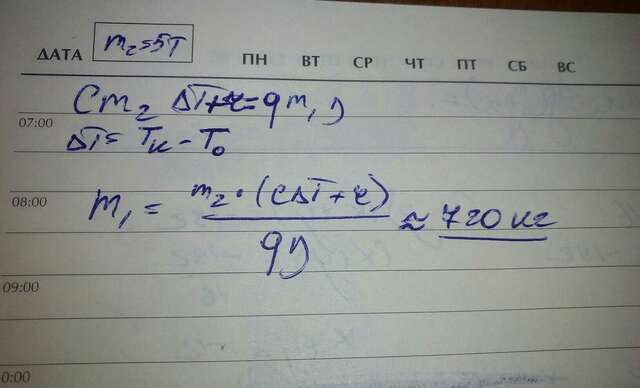 ДАТА m₂=5т ПН ВТ СР ЧТ ПТ СБ ВС
Cm₂ ΔT+r=qm₁η
07:00
ΔT= Tк - T₀
08:00
m₁ = m₂·(CΔT+r) / qη ≈ 720 кг
09:00
0:00